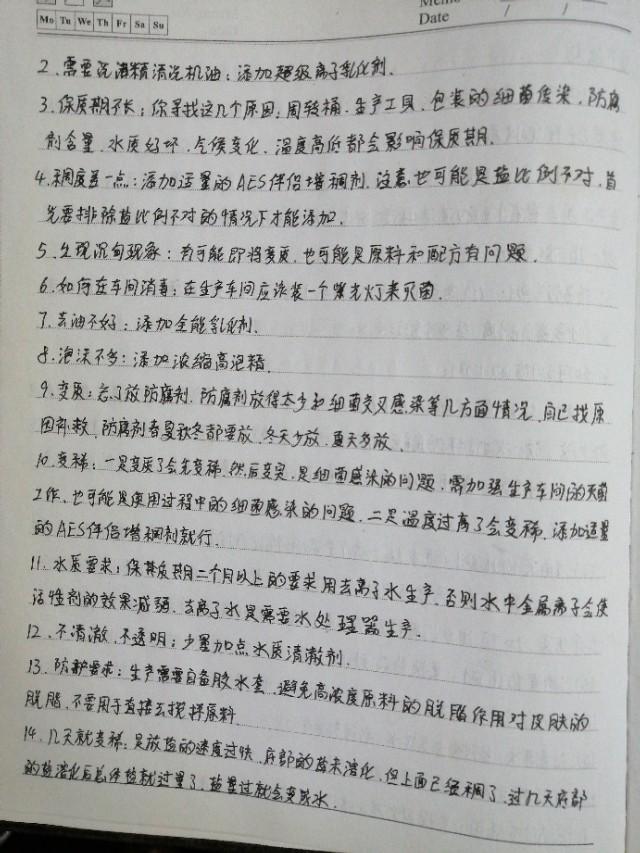 Memo
Mo Tu We Th Fr Sa Su
Date / /
2、需要洗洁精清洗机油：添加超级离子乳化剂.
3、保质期不长：你寻找这几个原因：周转桶、生产工具、包装的细菌传染，防腐
剂含量、水质好坏、气候变化、温度高低都会影响保质期.
4、稠度差一点：添加适量的AES伴侣增稠剂，注意也可能是盐比例不对，首
先要排除盐比例不对的情况下才能添加.
5、出现沉旬现象：有可能即将变质，也可能是原料和配方有问题.
6、如何在车间消毒：在生产车间应该装一个紫光灯来灭菌.
7、去油不好：添加全能乳化剂.
8、泡沫不多：添加浓缩高泡精.
9、变质：忘了放防腐剂，防腐剂放得太少和细菌交叉感染等几方面情况，自己找原
因所救，防腐剂春夏秋冬都要放，冬天少放，夏天多放.
10、变稀：一是变质了会先变稀，然后变臭，是细菌感染的问题，需加强生产车间的灭菌
工作，也可能是使用过程中的细菌感染的问题，二是温度过高了会变稀，添加适量
的AES伴侣增稠剂就行.
11、水质要求：保其质期二个月以上的要采用去离子水生产，否则水中金属离子会使
活性剂的效果减弱，去离子水是需要水处理器生产.
12、不清澈，不透明：少量加点水质清澈剂.
13、防护要求：生产需要自备胶水套，避免高浓度原料的脱脂作用对皮肤的
脱脂，不要用手直接去搅拌原料
14、几天就变稀：是放盐的速度过快，底部的盐未溶化，但上面已经稠了，过几天底部
的盐溶化后总体盐就过量了，盐量过就会变成水.